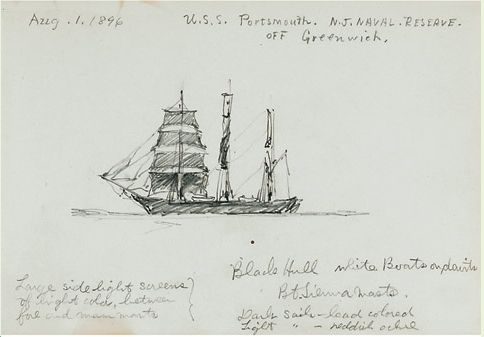 Aug. 1. 1896
U.S.S. Portsmouth. N.J. NAVAL. RESERVE.
OFF Greenwich.
Black Hull white Boats on davits
Bt. Sienna masts.
Large side light screens
of light color, between
fore and main masts
Dark sails - lead colored
Light " - reddish ochre